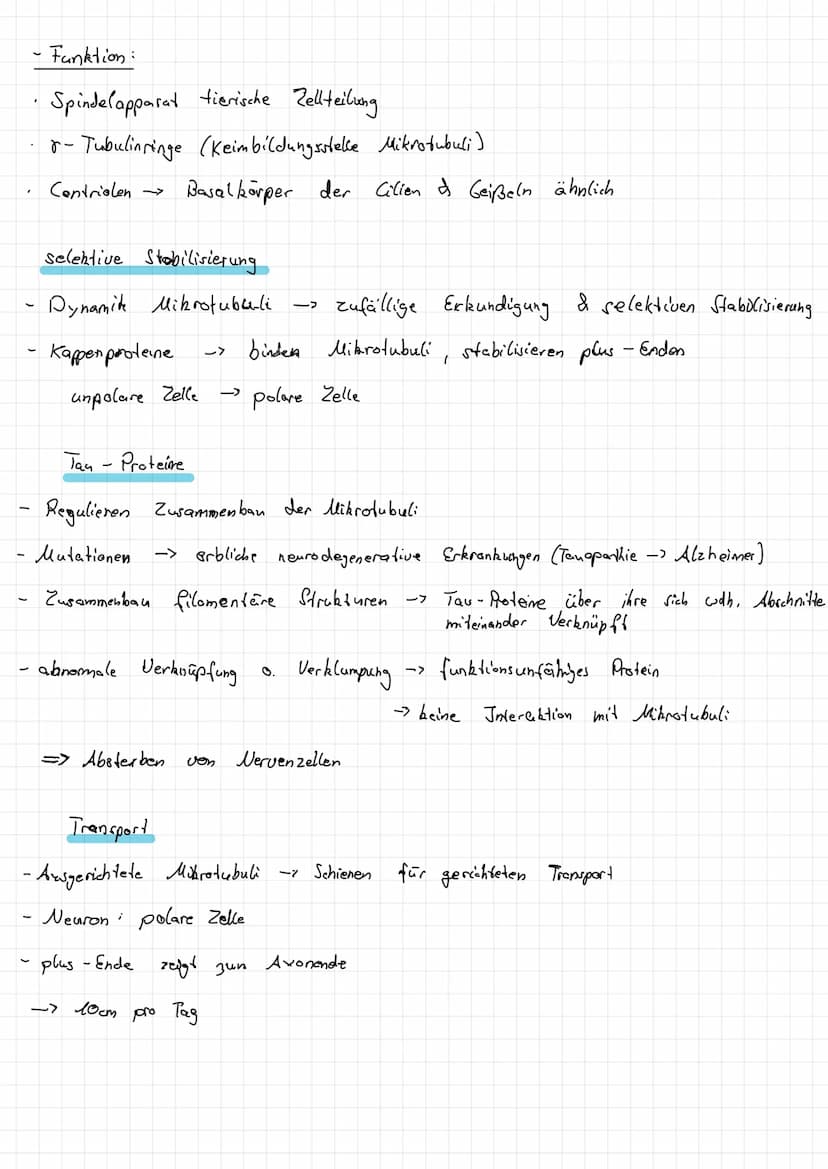 - Funktion:
· Spindelapparat tierische Zellteilung
· γ- Tubulinringe (Keimbildungsstelle Mikrotubuli)
· Centriolen → Basalkörper der Cilien & Geißeln ähnlich
selektive Stabilisierung
- Dynamik Mikrotubuli → zufällige Erkundigung & selektiven Stabilisierung
- Kappenproteine → binden Mikrotubuli, stabilisieren plus-Enden
unpolare Zelle → polare Zelle
Tau-Proteine
- Regulieren Zusammenbau der Mikrotubuli
- Mutationen → erbliche neurodegenerative Erkrankungen (Tauopathie → Alzheimer)
- Zusammenbau filamentäre Strukturen → Tau-Proteine über ihre sich wdh. Abschnitte
miteinander Verknüpft
- abnormale Verknüpfung o. Verklumpung → funktionsunfähiges Protein
→ keine Interaktion mit Mikrotubuli
=> Absterben von Nervenzellen
Transport
- Ausgerichtete Mikrotubuli → Schienen für gerichteten Transport
- Neuron: polare Zelle
- plus-Ende zeigt zum Axonende
→ 10cm pro Tag